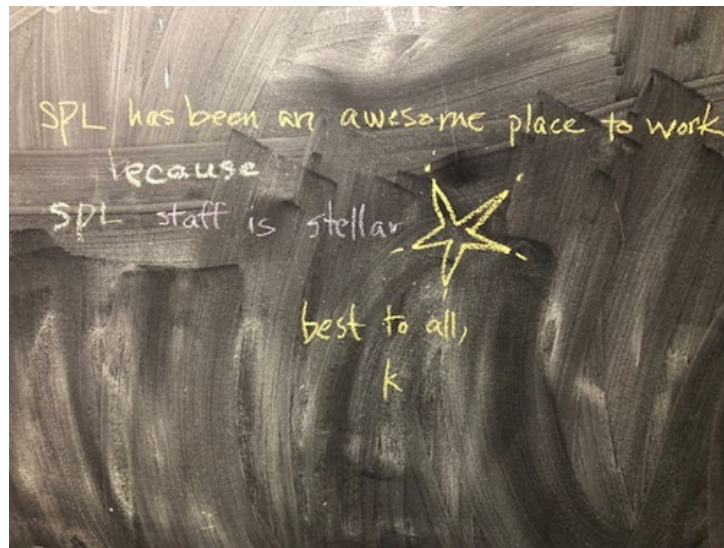 SPL has been an awesome place to work
because
SPL staff is stellar
best to all,
k